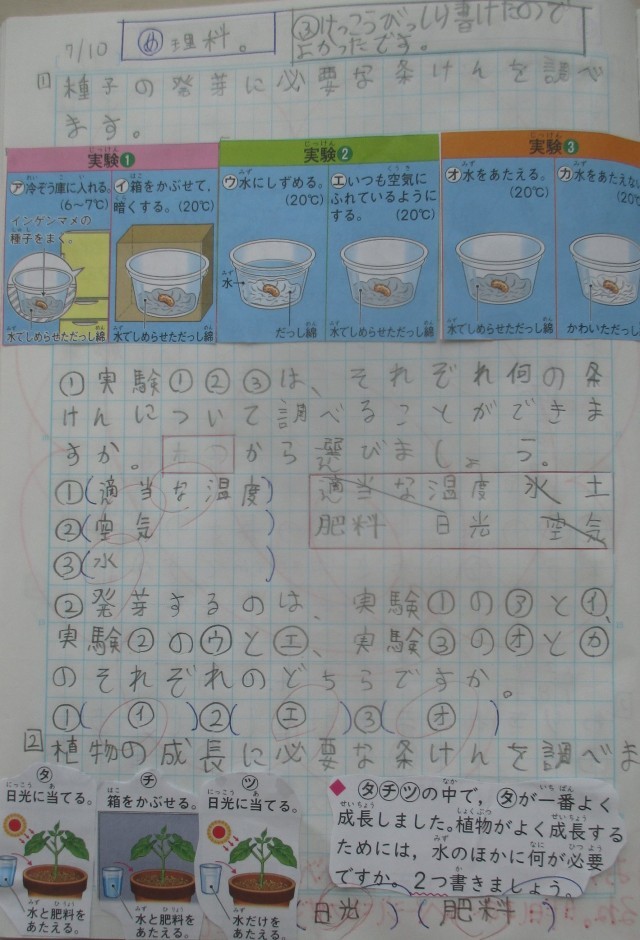 7/10 め 理科。 ③けっこうびっしり書けたので
よかったです。
1 種子の発芽に必要な条けんを調べ
ます。
実験1
ア冷ぞう庫に入れる。
(6〜7℃)
インゲンマメの
種子をまく。
水でしめらせただっし綿
イ箱をかぶせて、
暗くする。(20℃)
水でしめらせただっし綿
実験2
ウ水にしずめる。
(20℃)
水
だっし綿
エいつも空気に
ふれているように
する。(20℃)
水でしめらせただっし綿
実験3
オ水をあたえる。
(20℃)
水でしめらせただっし綿
カ水をあたえな
(20℃
かわいただっし
①実験①②③は、それぞれ何の条
けんについて調べることができま
すか。から選びましょう。
①(適当な温度)
②(空気)
③(水)
適当な温度 水 土
肥料 日光 空気
②発芽するのは、実験①のアとイ、
実験②のウとエ、実験③のオとカ
のそれぞれのどちらですか。
①(イ)②(エ)③(オ)
2 植物の成長に必要な条けんを調べま
タ
日光に当てる。
水と肥料を
あたえる。
チ
箱をかぶせる。
水と肥料を
あたえる。
ツ
日光に当てる。
水だけを
あたえる。
◆タチツの中で、タが一番よく
成長しました。植物がよく成長する
ためには、水のほかに何が必要
ですか。2つ書きましょう。
(日光)(肥料)